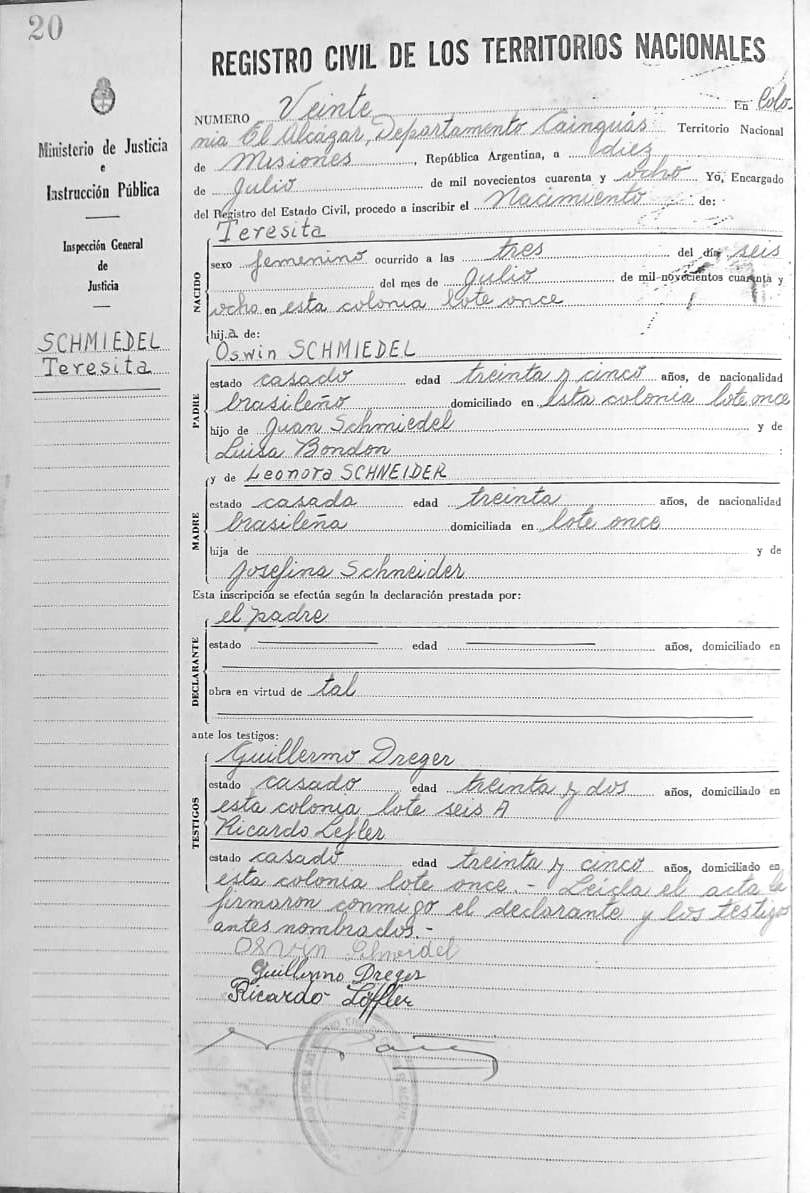 20
REGISTRO CIVIL DE LOS TERRITORIOS NACIONALES
Ministerio de Justicia
e
Instrucción Pública
Inspección General
de
Justicia
SCHMIEDEL
Teresita
NUMERO Veinte En Colo-
nia El Alcázar, Departamento Cainguás Territorio Nacional
de Misiones, República Argentina, a diez
de Julio de mil novecientos cuarenta y ocho Yó, Encargado
del Registro del Estado Civil, procedo a inscribir el Nacimiento de:
NACIDO
Teresita
sexo femenino ocurrido a las tres del día seis
del mes de Julio de mil novecientos cuarenta y
ocho en esta colonia lote once
hij.a de:
PADRE
Oswin SCHMIEDEL
estado casado edad treinta y cinco años, de nacionalidad
brasileño domiciliado en esta colonia lote once
hijo de Juan Schmiedel y de
Luisa Bondon :
MADRE
y de Leonora SCHNEIDER
estado casada edad treinta años, de nacionalidad
brasileña domiciliada en lote once
hija de y de
Josefina Schneider
Esta inscripción se efectúa según la declaración prestada por:
DECLARANTE
el padre
estado edad años, domiciliado en
obra en virtud de tal
ante los testigos:
TESTIGOS
Guillermo Dreger
estado casado edad treinta y dos años, domiciliado en
esta colonia lote seis A
Ricardo Lefler
estado casado edad treinta y cinco años, domiciliado en
esta colonia lote once.- Leída el acta la
firmaron conmigo el declarante y los testigos
antes nombrados.-
Osvin
Guillermo Dreger
Ricardo Löffler